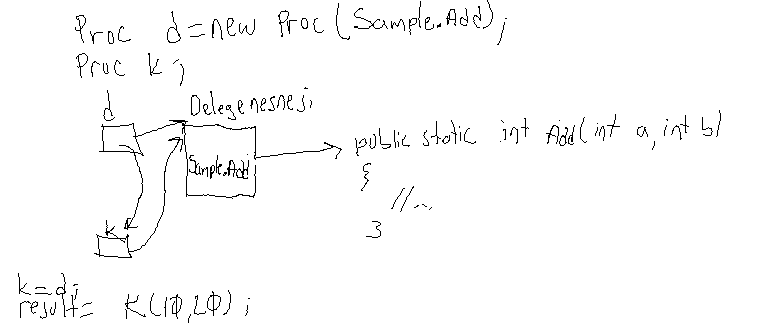 Proc d=new Proc(Sample.Add);
Proc k;
d
Delege nesnesi
Sample.Add
public static int Add(int a, int b)
{
//...
}
k
k=d;
result= k(10,20);